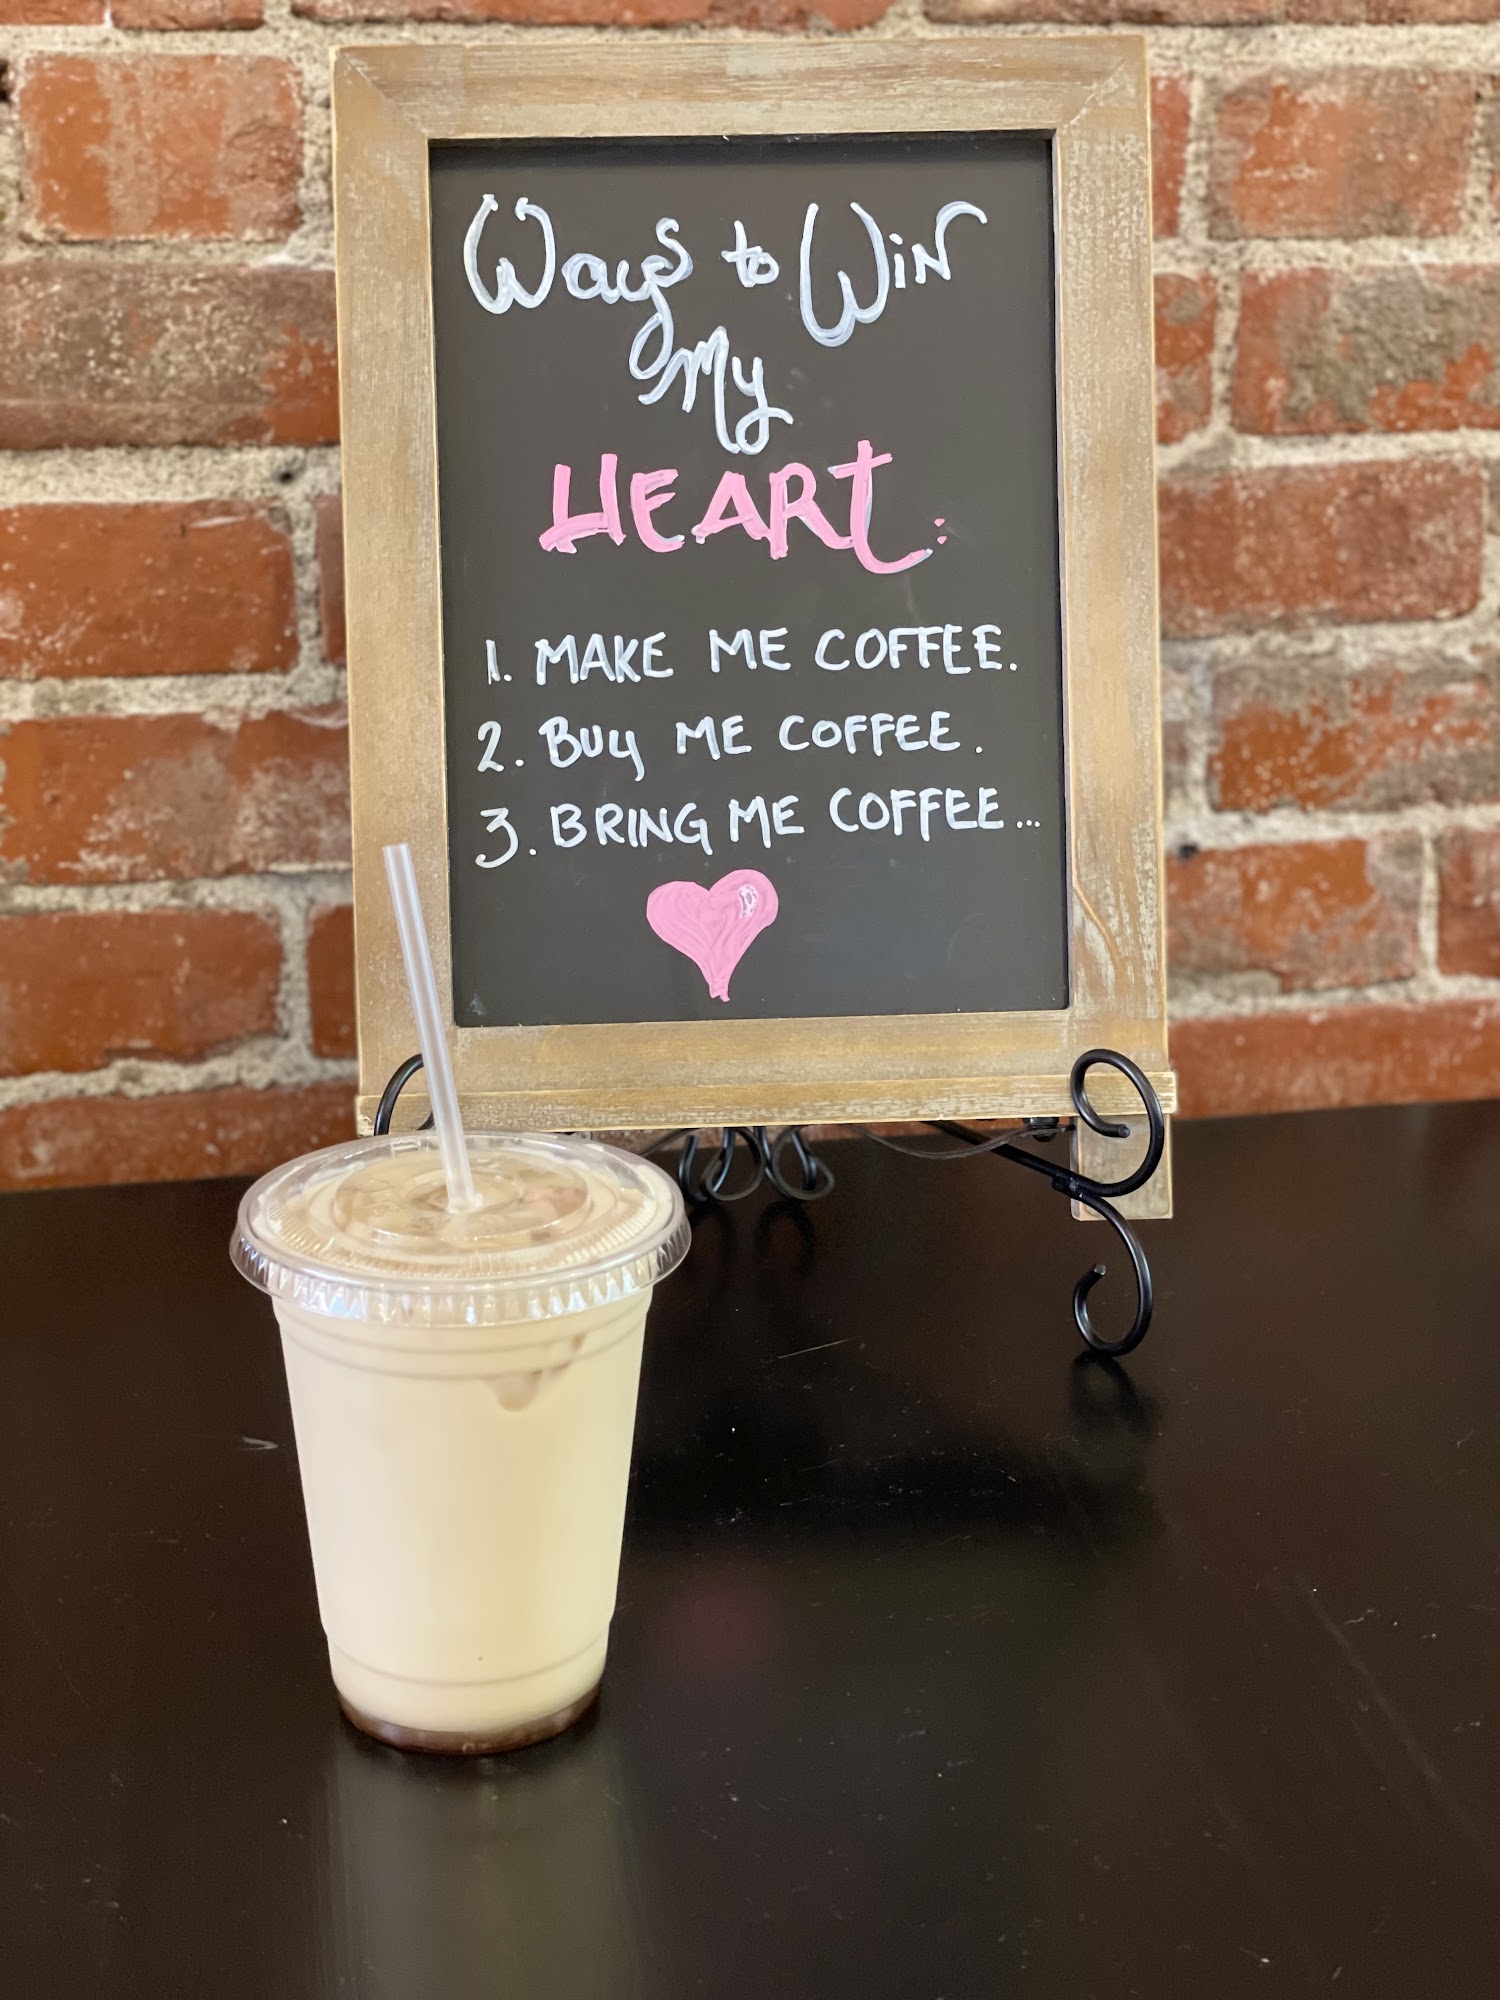 Ways to Win
My
HEART:
1. MAKE ME COFFEE.
2. Buy ME COFFEE.
3. BRING ME COFFEE...